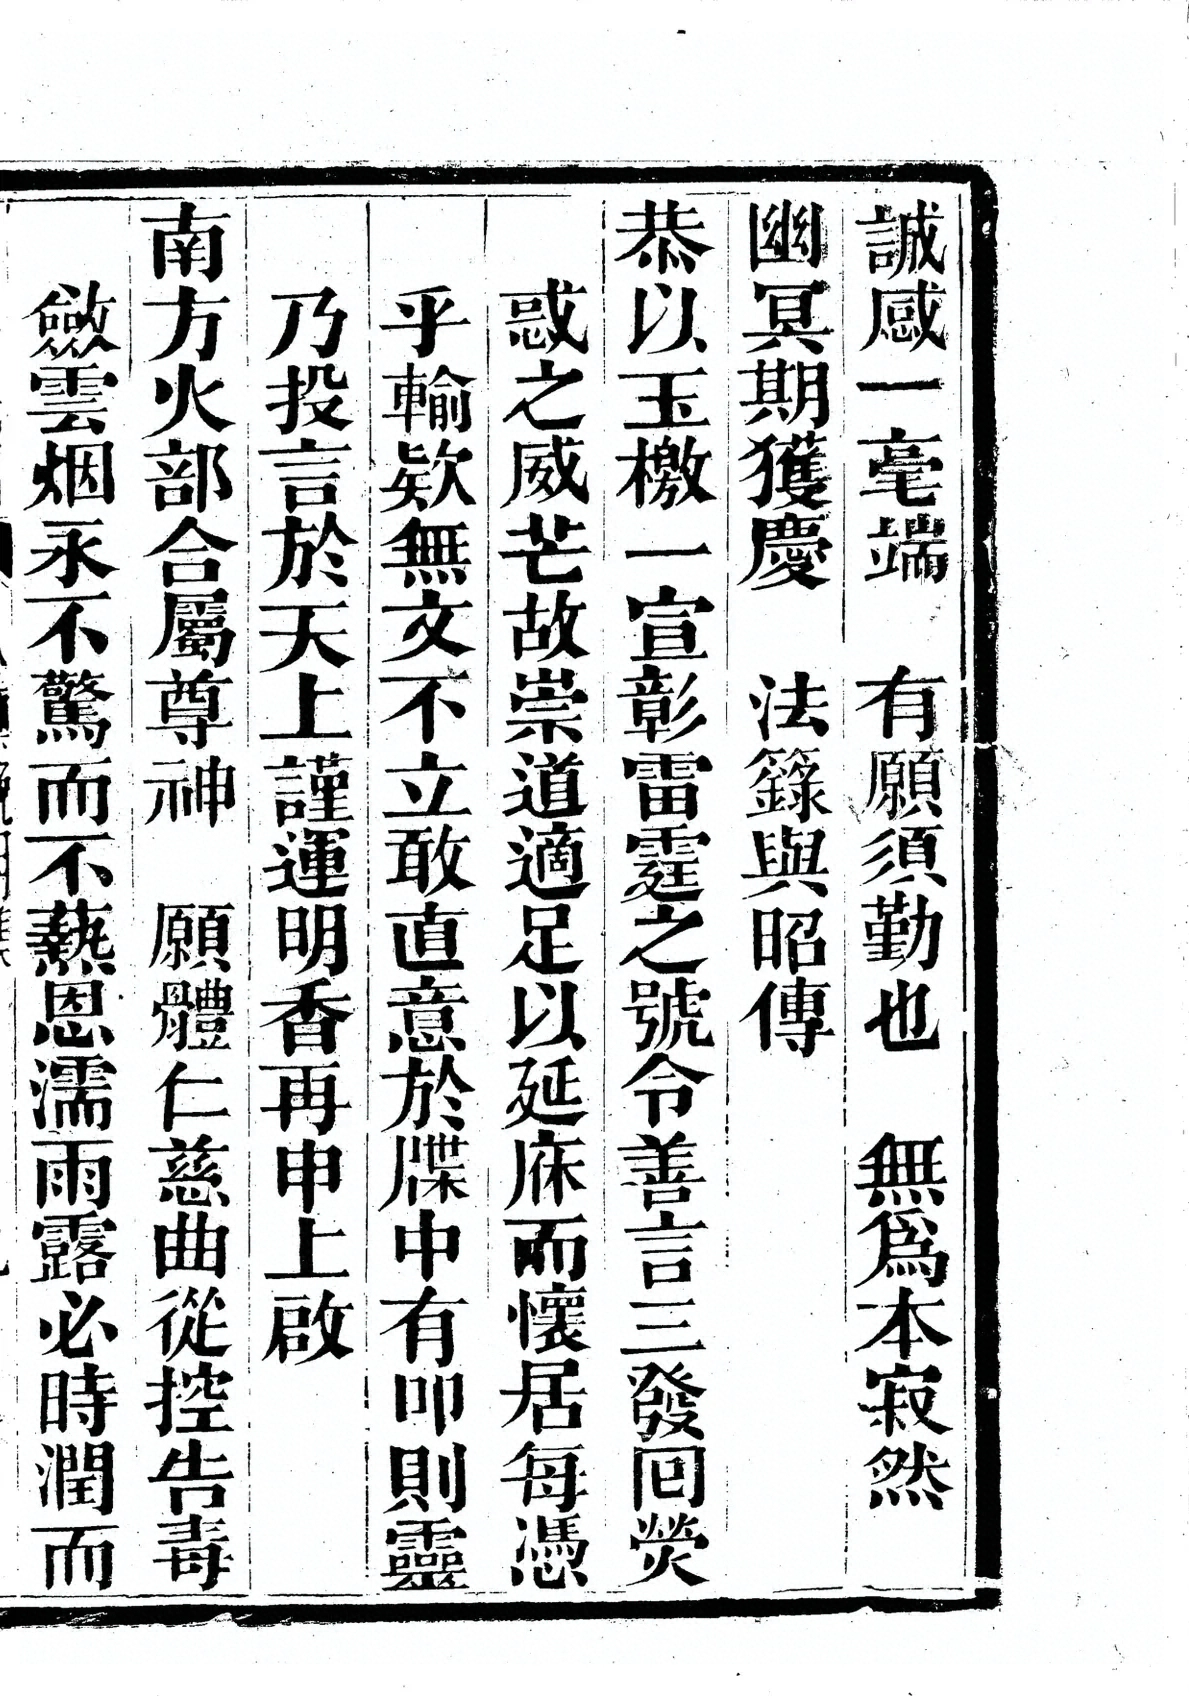 誠感一毫端　有願須勤也　無爲本寂然
幽冥期獲慶　法籙與昭傳
恭以玉檄一宣彰雷霆之號令善言三發回熒
惑之威芒故崇道適足以延庥而懷居每憑
乎輸欵無文不立敢直意於牒中有叩則靈
乃投言於天上謹運明香再申上啟
南方火部合屬尊神　願體仁慈曲從控告毒
斂雲烟永不驚而不熱恩濡雨露必時潤而